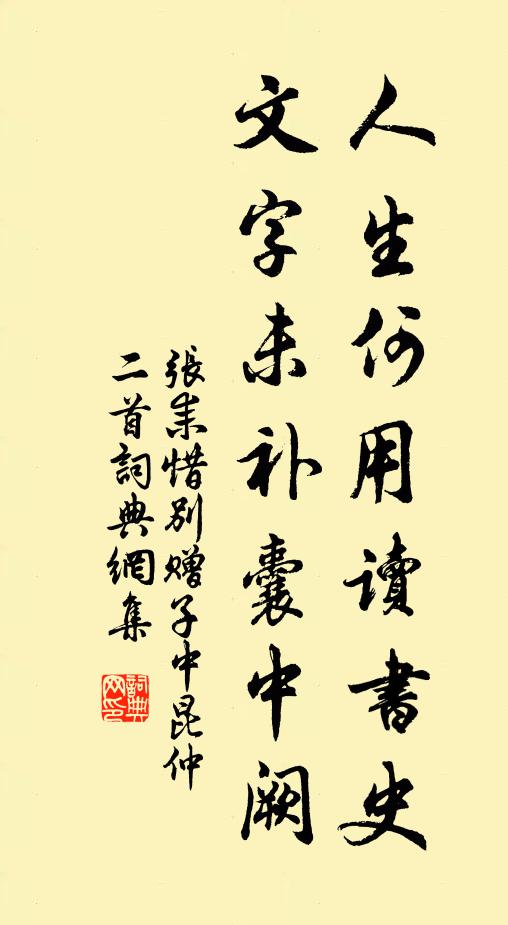 人生何用讀書史
文字未补囊中阙
張耒惜别赠子中昆仲
二首詞典網集
詞典
网印